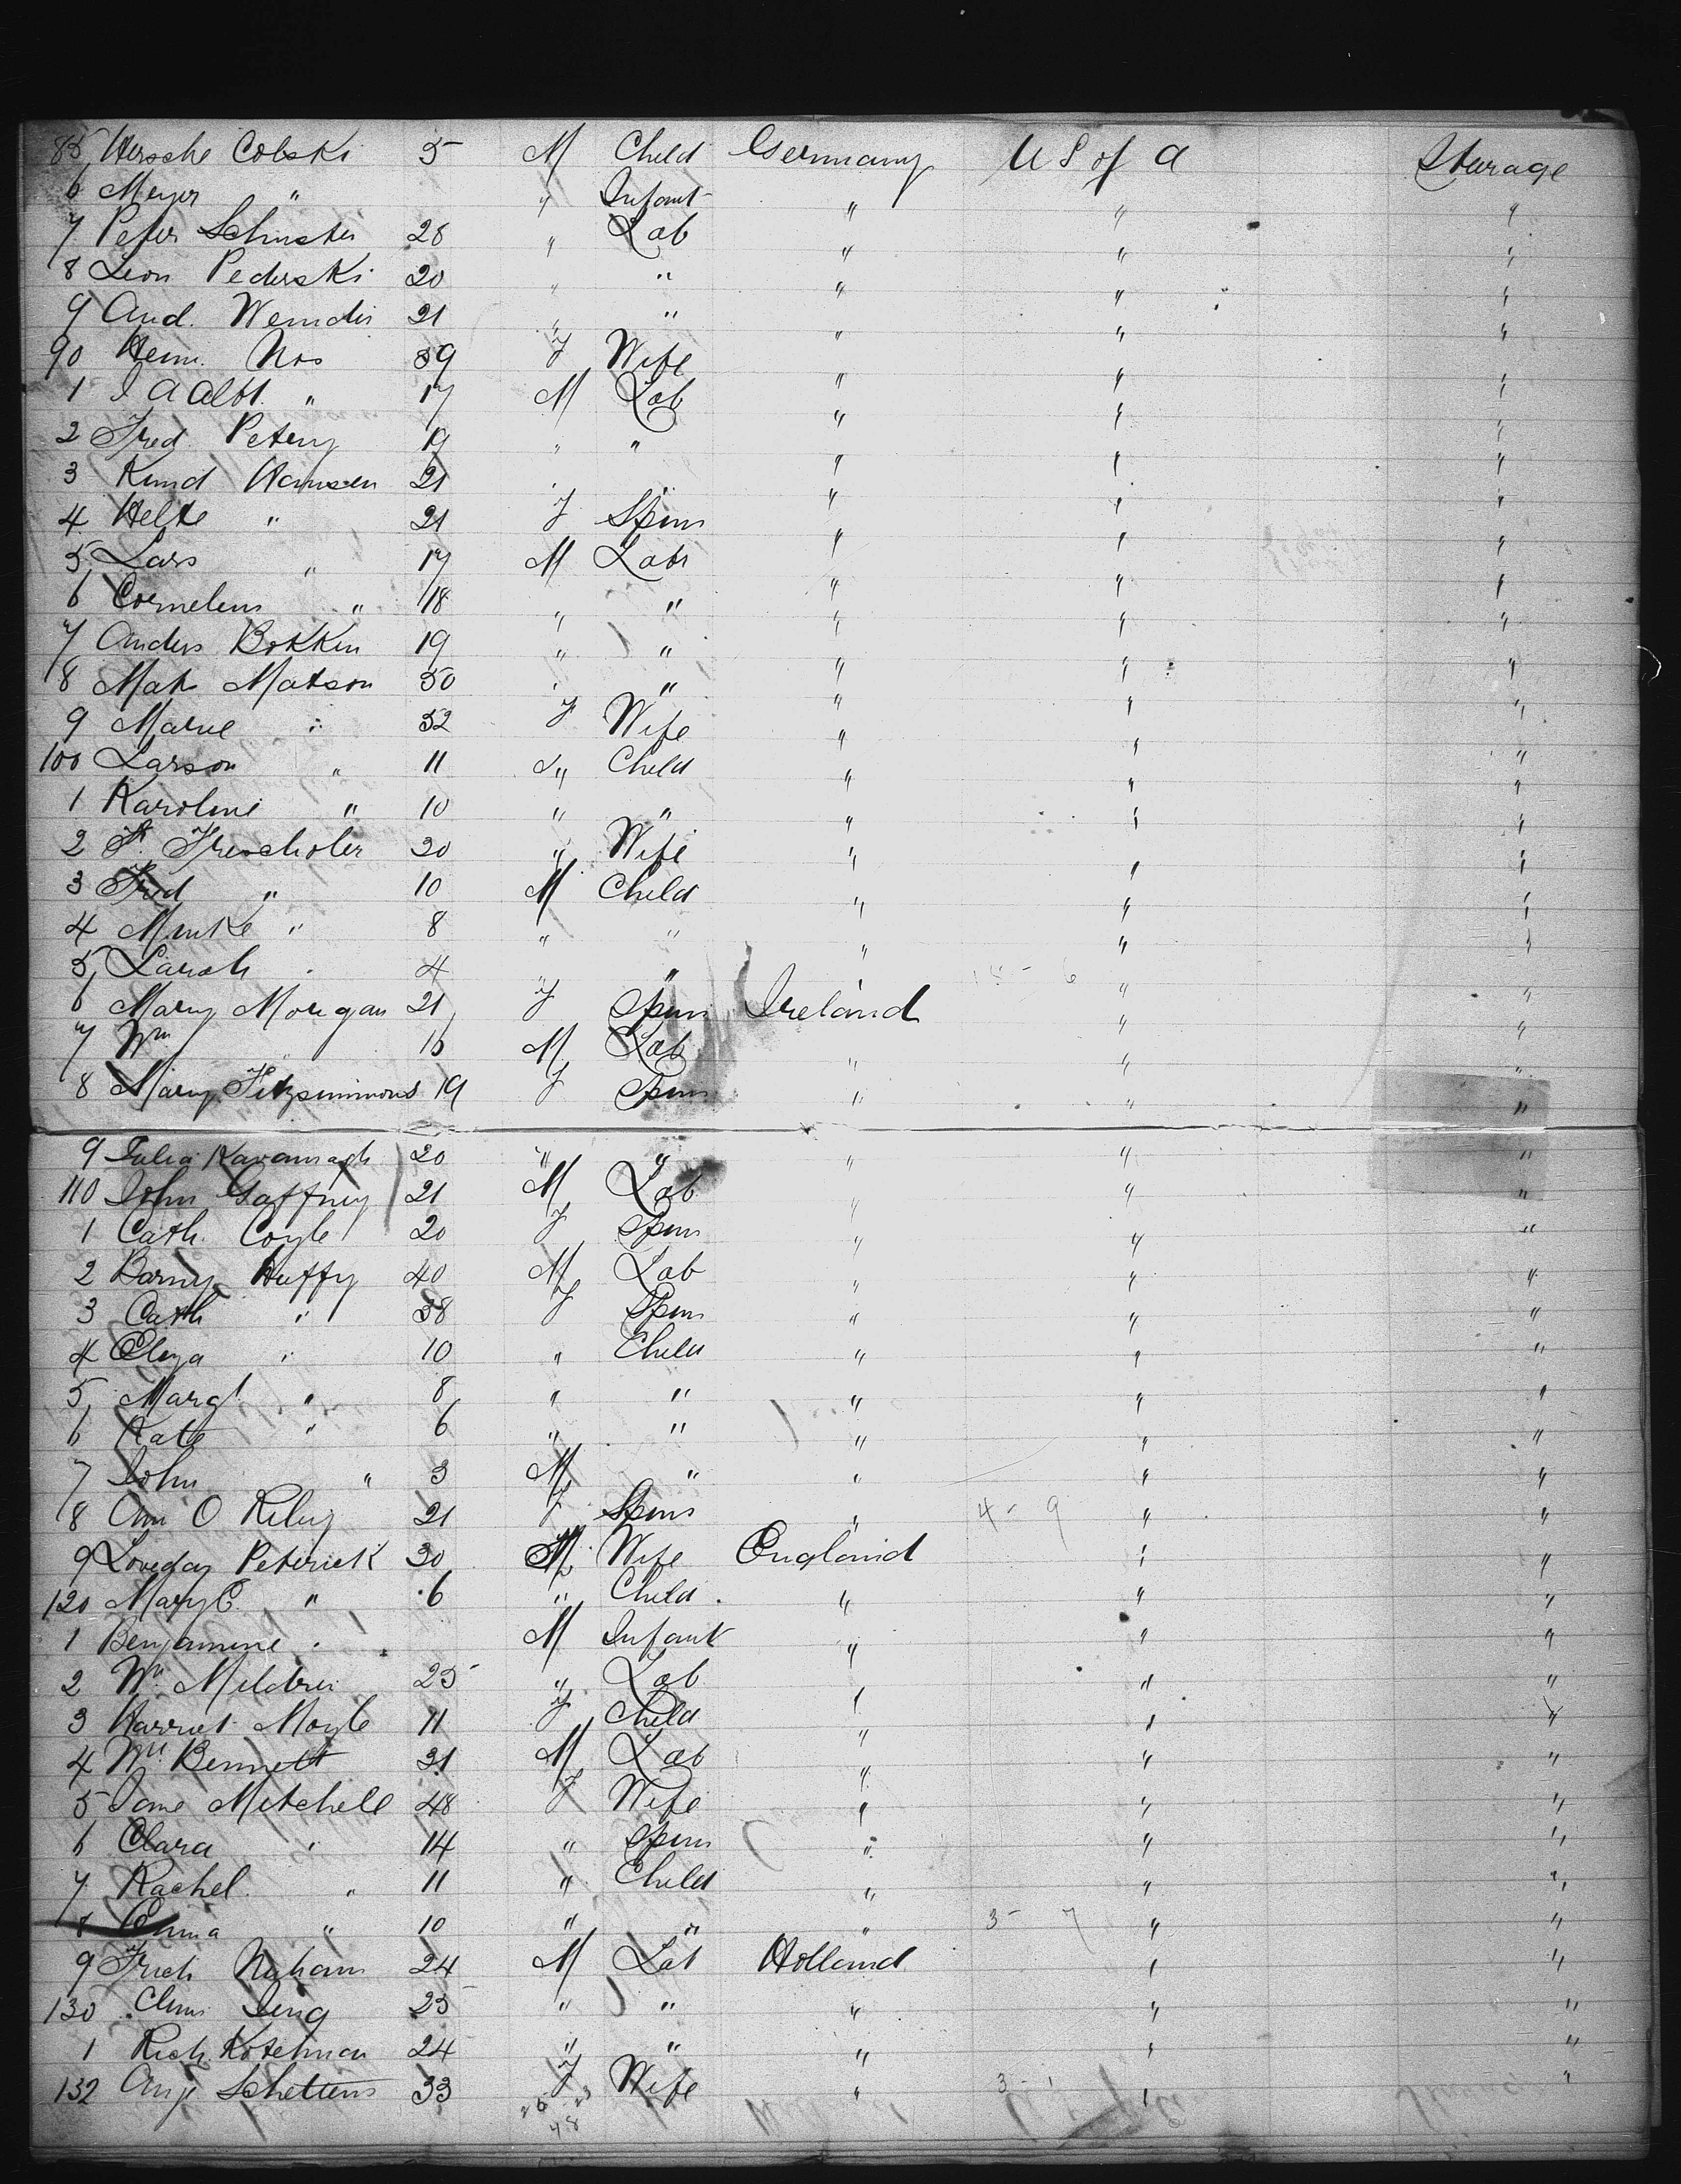 85 Hersche Cobski 5 M Child Germany U S of A Sturage
6 Meyer " " Infant " " "
7 Peter Schuster 28 " Lab " " "
8 Leon Pederski 20 " " " " "
9 And. Wemdis 21 " " " " "
90 Henn. Nos 39 F Wife " " "
1 J A Albt. " 17 M Lab " " "
2 Fred Peterg 19 " " " " "
3 Knud Hansen 21 " " " " "
4 Helte " 21 F Spins " " "
5 Lars " 17 M Labr " " "
6 Cornelius " 18 " " " " "
7 Anders Bokken 19 " " " " "
8 Mats Matson 50 " " " " "
9 Marie " 52 F Wife " " "
100 Larson " 11 " Child " " "
1 Karoline " 10 " " " " "
2 Fr Frescholer 30 " Wife " " "
3 Fred " 10 M Child " " "
4 Minke " 8 " " " " "
5 Sarah " 4 " " " "
6 Mary Morgan 21 F Spins Ireland " "
7 Wm " 16 M Lab " " "
8 Mary Fitzsimmons 19 F Spins " " "
9 Julia Kavanagh 20 " " " " "
110 John Gaffney 21 M Lab " " "
1 Cath. Coyle 20 F Spins " " "
2 Barny Huffy 40 M Lab " " "
3 Cath " 38 F Spins " " "
4 Eliza " 10 " Child " " "
5 Margt " 8 " " " " "
6 Kate " 6 " " " " "
7 John " 3 M " " " "
8 Ann O Reliy 21 F Spins " 4 - 9 " "
9 Loveday Peterick 30 Wife England " "
120 Mary E " 6 " Child " " "
1 Benjamine " M Infant " " "
2 Wm Mildren 25 " Lab " " "
3 Harriet Moyle 11 F Child " " "
4 Wm Bennett 31 M Lab " " "
5 Jane Mitchell 48 F Wife " " "
6 Clara " 14 " Spins " " "
7 Rachel " 11 " Child " " "
8 Emma " 10 " " " 3 - 7 " "
9 Frich Nuhans 24 M Lab Holland " "
130 Chris Jing 25 " " " " "
1 Rich. Kotehman 24 " " " " "
132 Ang Schettens 33 F Wife " 3 - 1 " "